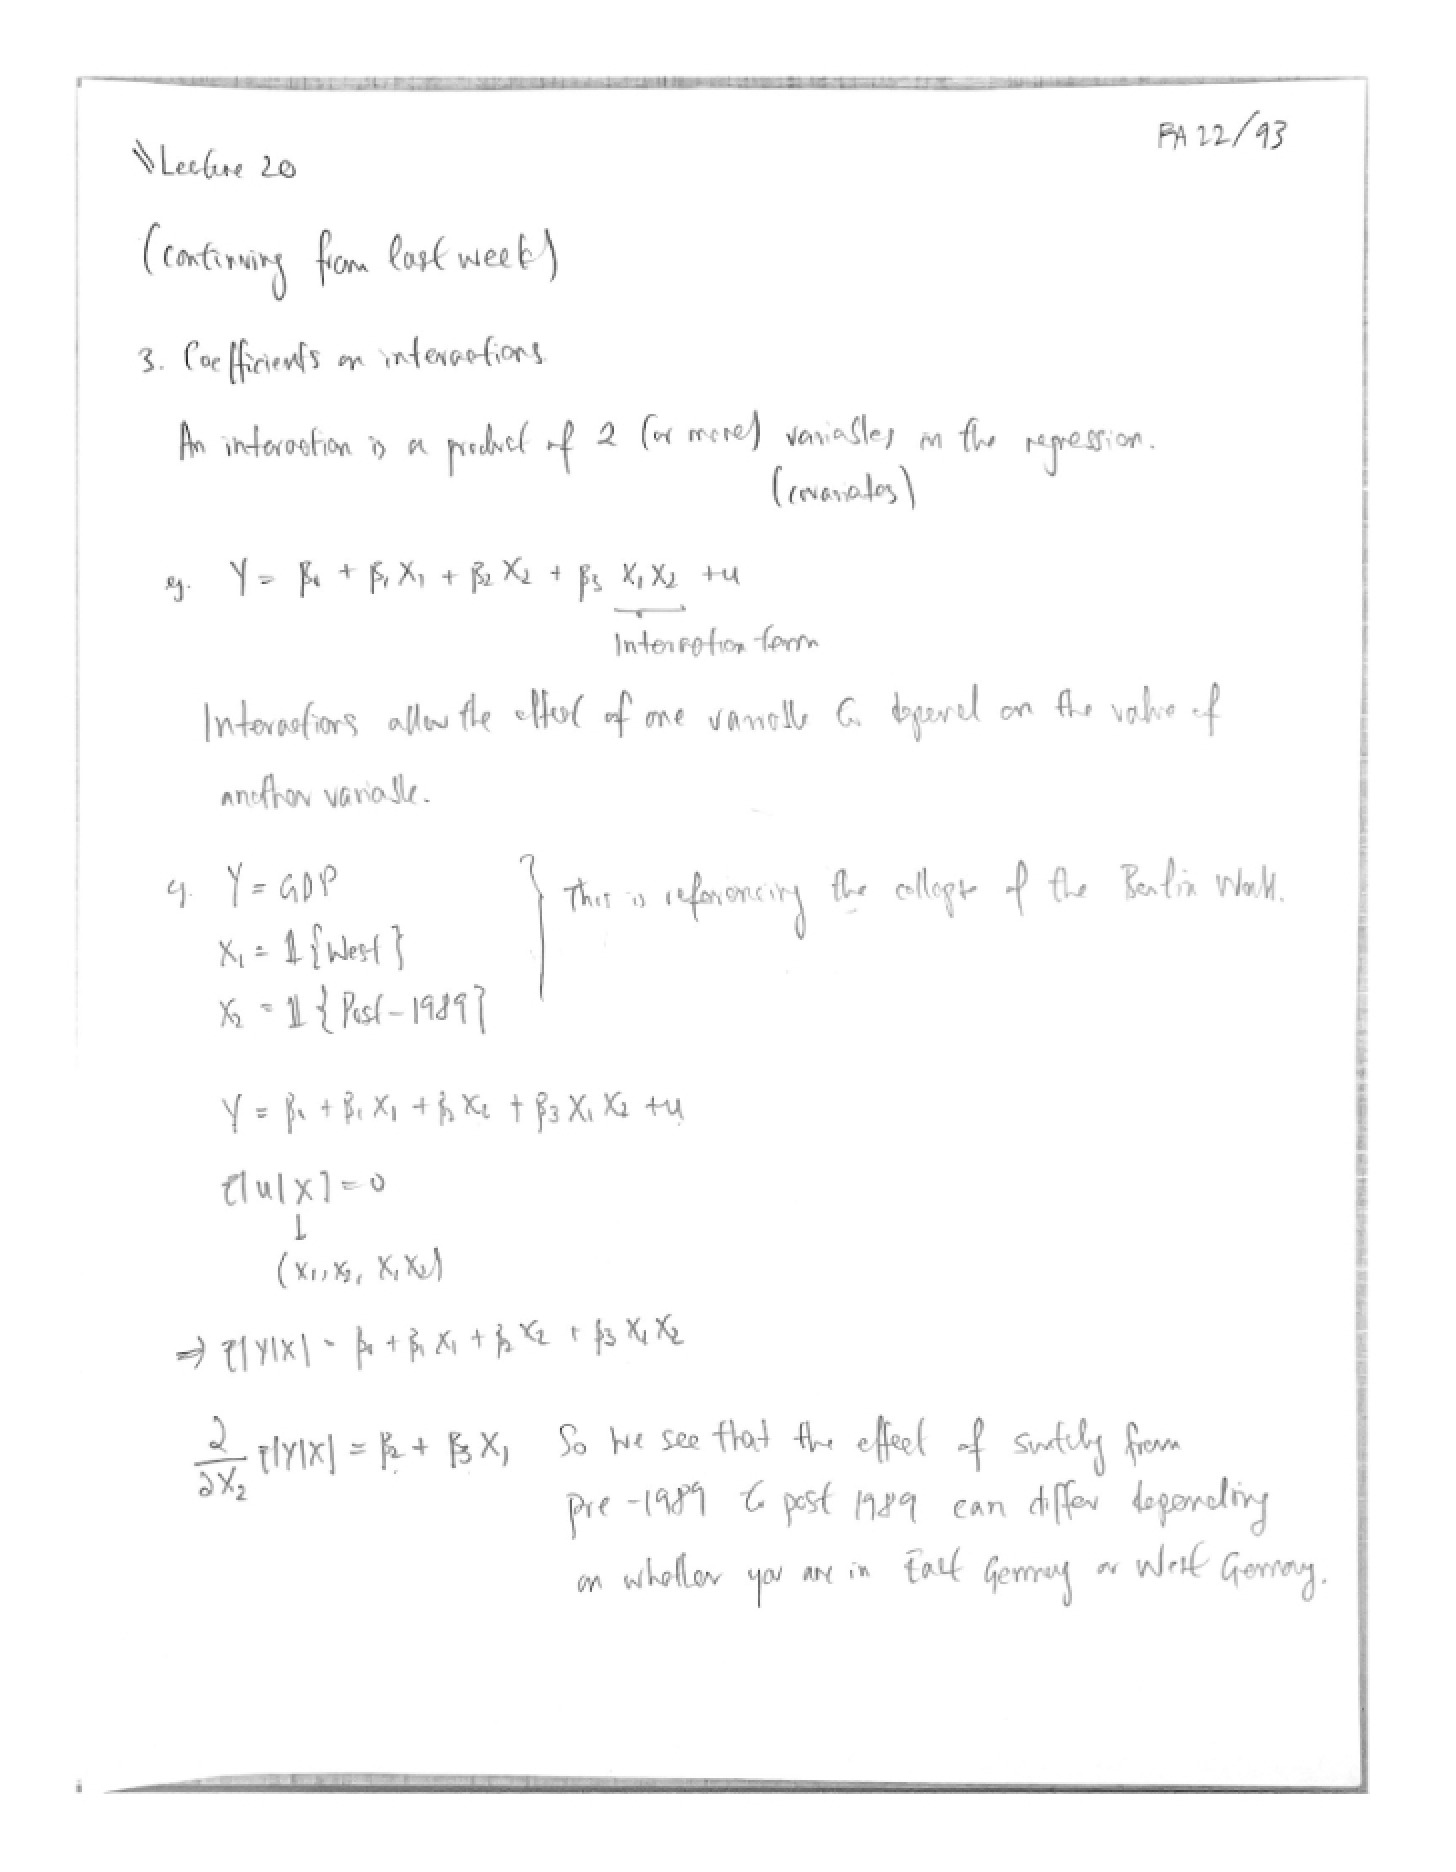 FA 22/93
\\Lecture 20
(continuing from last week)
3. Coefficients on interactions
An interaction is a product of 2 (or more) variables in the regression.
(covariates)
eg. Y = β₀ + β₁X₁ + β₂X₂ + β₃ X₁X₂ + u
Interaction term
Interactions allow the effect of one variable to depend on the value of
another variable.
eg. Y = GDP
This is referencing the collapse of the Berlin Wall.
X₁ = 𝟙{West}
X₂ = 𝟙{Post-1989}
Y = β₀ + β₁X₁ + β₂X₂ + β₃X₁X₂ + u
E[u|X] = 0
↓
(X₁, X₂, X₁X₂)
⇒ E[Y|X] = β₀ + β₁X₁ + β₂X₂ + β₃X₁X₂
∂/∂X₂ E[Y|X] = β₂ + β₃X₁ So we see that the effect of from
pre-1989 to post 1989 can differ depending
on whether you are in East Germany or West Germany.